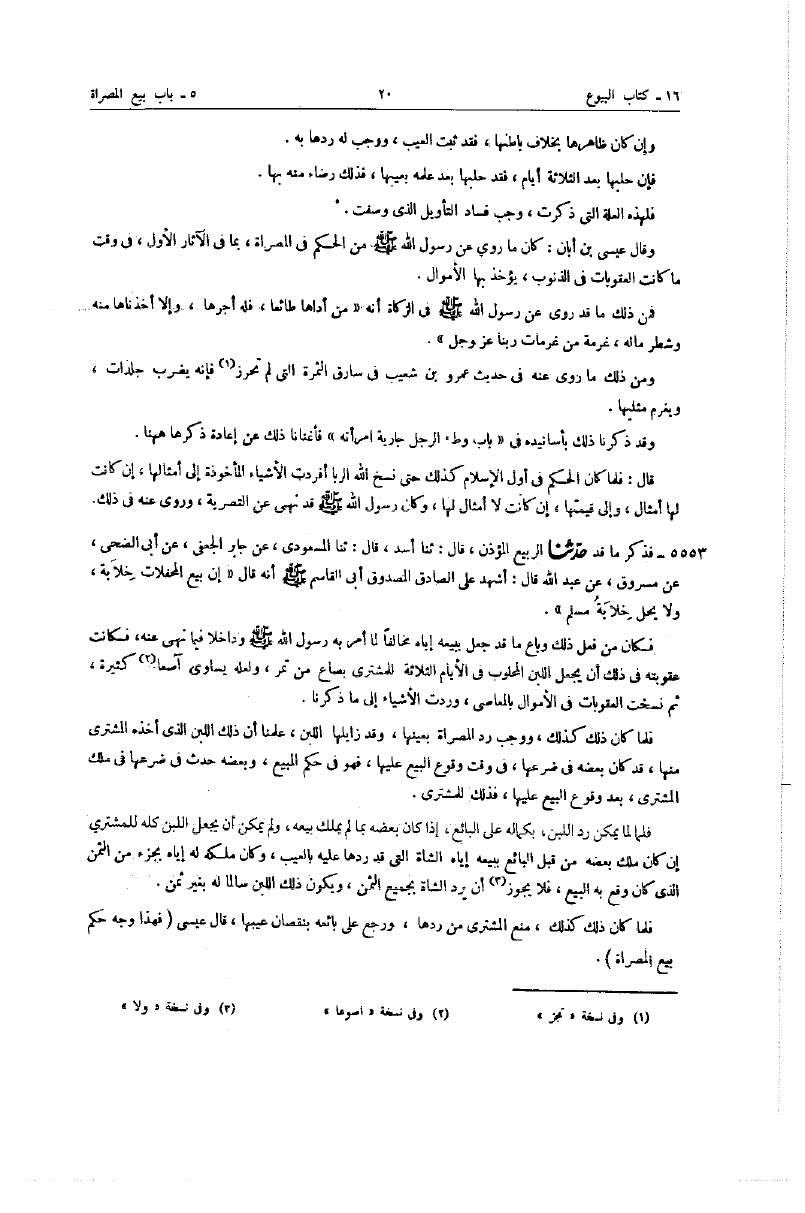 ١٦ - كتاب البيوع ٢٠ ٥ - باب بيع المصراة
وإن كان ظاهرها بخلاف باطنها ، فقد ثبت العيب ، ووجب له ردها به .
فإن حلبها بعد الثلاثة أيام ، فقد حلبها بعد علمه بعيبها ، فذلك رضاء منه بها .
فلهذه العلة التى ذكرت ، وجب فساد التأويل الذى وصفت .
وقال عيسى بن أبان : كان ما روي عن رسول الله ﷺ من الحكم فى المصراة ، بما فى الآثار الأول ، فى وقت
ما كانت العقوبات فى الذنوب ، يؤخذ بها الأموال .
فمن ذلك ما قد روى عن رسول الله ﷺ فى الزكاة أنه « من أداها طائعا ، فله أجرها ، وإلا أخذناها منه
وشطر ماله ، غرمة من غرمات ربنا عز وجل » .
ومن ذلك ما روى عنه فى حديث عمرو بن شعيب فى سارق الثمرة التى لم تحرز(١) فإنه يضرب جلدات ،
ويغرم مثليها .
وقد ذكرنا ذلك بأسانيده فى « باب وطء الرجل جارية امرأته » فأغنانا ذلك عن إعادة ذكرها ههنا .
قال : فلما كان الحكم فى أول الإسلام كذلك حتى نسخ الله الربا أفردت الأشياء المأخوذة إلى أمثالها ، إن كانت
لها أمثال ، وإلى قيمتها ، إن كانت لا أمثال لها ، وكان رسول الله ﷺ قد نهى عن التصرية ، وروى عنه فى ذلك.
٥٥٥٣ - فذكر ما قد حدثنا الربيع المؤذن ، قال : ثنا أسد ، قال : ثنا المسعودى ، عن جابر الجعفى ، عن أبى الضحى ،
عن مسروق ، عن عبد الله قال : أشهد على الصادق المصدوق أبى القاسم ﷺ أنه قال « إن بيع المحفلات خِلابة ،
ولا يحل خِلابةُ مسلم » .
فكان من فعل ذلك وباع ما قد جعل ببيعه إياه مخالفاً لما أمر به رسول الله ﷺ وداخلا فيما نهى عنه، فكانت
عقوبته فى ذلك أن يجعل اللبن المحلوب فى الأيام الثلاثة للمشترى بصاع من تمر ، ولعله يساوى آصعا(٢) كثيرة ،
ثم نسخت العقوبات فى الأموال بالمعاصى ، وردت الأشياء إلى ما ذكرنا .
فلما كان ذلك كذلك ، ووجب رد المصراة بعينها ، وقد زايلها اللبن ، علمنا أن ذلك اللبن الذى أخذه المشترى
منها ، قد كان بعضه فى ضرعها ، فى وقت وقوع البيع عليها ، فهو فى حكم المبيع ، وبعضه حدث فى ضرعها فى ملك
المشترى ، بعد وقوع البيع عليها ، فذلك للمشترى .
فلما لم يمكن رد اللبن، بكماله على البائع ، إذا كان بعضه بما لم يملك بيعه، ولم يمكن أن يجعل اللبن كله للمشتري
إن كان ملك بعضه من قبل البائع ببيعه إياه الشاة التى قد ردها عليه بالعيب ، وكان ملكه له إياه بجزء من الثمن
الذى كان وقع به البيع ، فلا يجوز(٣) أن يرد الشاة بجميع الثمن ، ويكون ذلك اللبن سالما له بغير ثمن .
فلما كان ذلك كذلك ، منع المشترى من ردها ، ورجع على بائعه بنقصان عيبها ، قال عيسى ( فهذا وجه حكم
بيع المصراة ) .
(١) وفى نسخة « تجز » (٢) وفى نسخة « اصوعا » (٣) وفى نسخة « ولا »